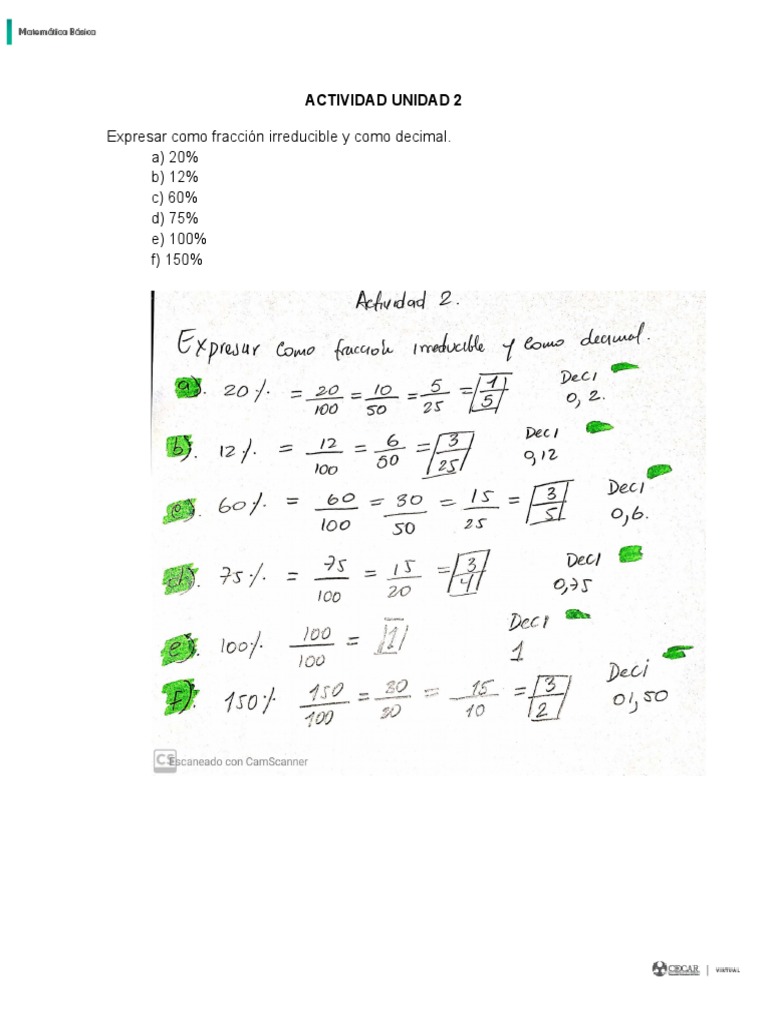 Matemática Básica
ACTIVIDAD UNIDAD 2
Expresar como fracción irreducible y como decimal.
a) 20%
b) 12%
c) 60%
d) 75%
e) 100%
f) 150%
Actividad 2.
Expresar como fracción irreducible y como decimal.
a). 20% = 20/100 = 10/50 = 5/25 = 1/5 Deci 0,2.
b). 12% = 12/100 = 6/50 = 3/25 Deci 0,12
c). 60% = 60/100 = 30/50 = 15/25 = 3/5 Deci 0,6.
d). 75% = 75/100 = 15/20 = 3/4 Deci 0,75
e). 100% 100/100 = 1 Deci 1
f). 150% 150/100 = 30/20 = 15/10 = 3/2 Deci 01,50
CS Escaneado con CamScanner
CECAR | VIRTUAL